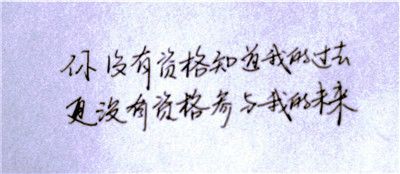 你没有资格知道我的过去
更没有资格参与我的未来